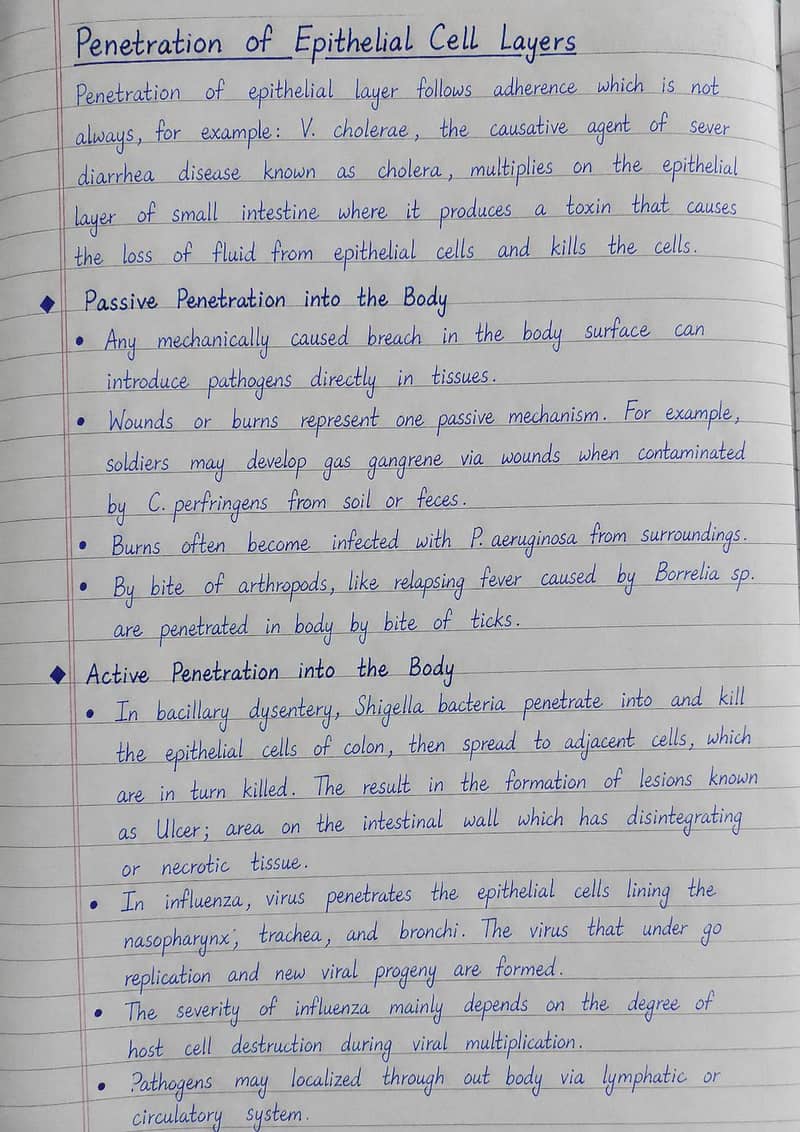 Penetration of Epithelial Cell Layers
Penetration of epithelial layer follows adherence which is not
always, for example: V. cholerae, the causative agent of sever
diarrhea disease known as cholera, multiplies on the epithelial
layer of small intestine where it produces a toxin that causes
the loss of fluid from epithelial cells and kills the cells.
◆ Passive Penetration into the Body
• Any mechanically caused breach in the body surface can
introduce pathogens directly in tissues.
• Wounds or burns represent one passive mechanism. For example,
soldiers may develop gas gangrene via wounds when contaminated
by C. perfringens from soil or feces.
• Burns often become infected with P. aeruginosa from surroundings.
• By bite of arthropods, like relapsing fever caused by Borrelia sp.
are penetrated in body by bite of ticks.
◆ Active Penetration into the Body
• In bacillary dysentery, Shigella bacteria penetrate into and kill
the epithelial cells of colon, then spread to adjacent cells, which
are in turn killed. The result in the formation of lesions known
as Ulcer; area on the intestinal wall which has disintegrating
or necrotic tissue.
• In influenza, virus penetrates the epithelial cells lining the
nasopharynx, trachea, and bronchi. The virus that under go
replication and new viral progeny are formed.
• The severity of influenza mainly depends on the degree of
host cell destruction during viral multiplication.
• Pathogens may localized through out body via lymphatic or
circulatory system.